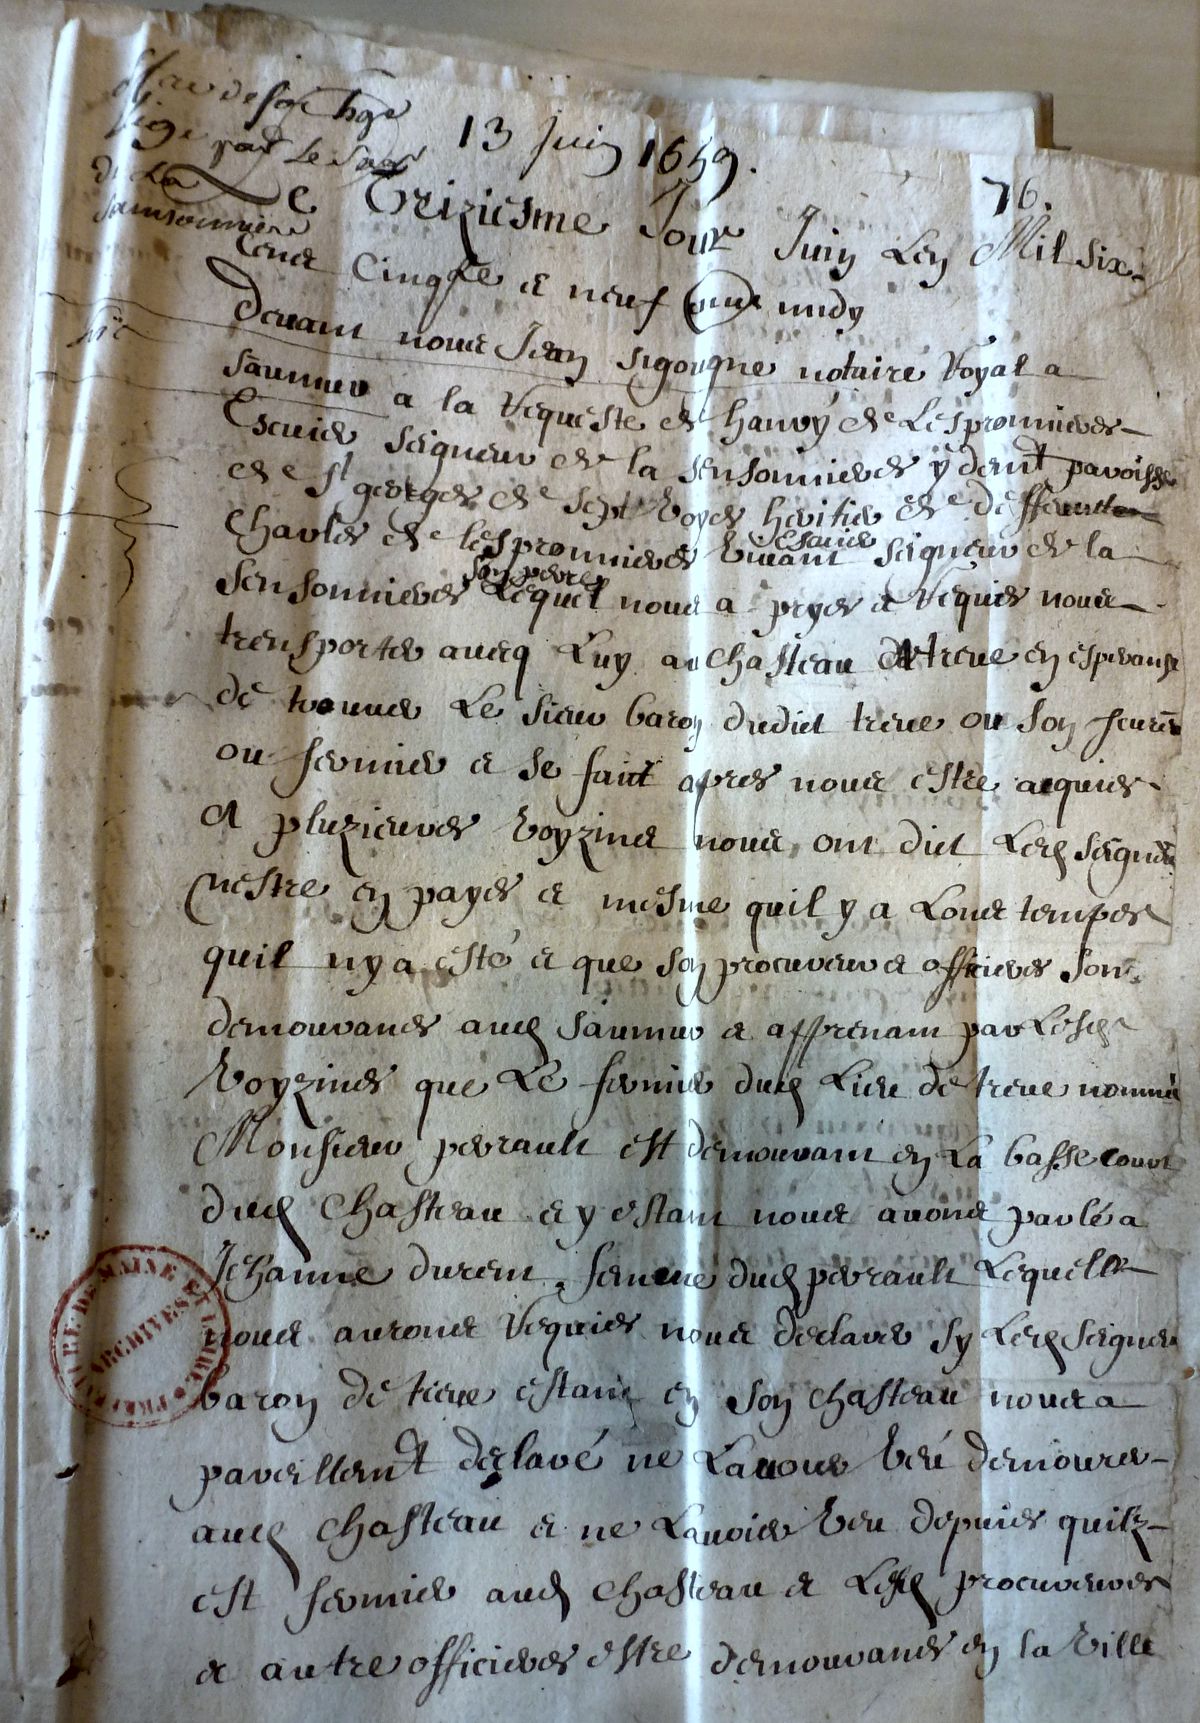 de foy
lige par Le
de La
sansonniere
13 Juin 1659.
76.
Le Treziesme Jour Juin Lan Mil six
Cens Cinqte et neuf midy
Devant nous Jean sigougne notaire Royal a
saumur a la Requeste de hanry de Lespronnieres
Escuier seigneur de la sensonnieres y demt parroisse
de st georges de sept voyes heritier de deffunct
charles de lespronnieres vivant Escuier seigneur de la
sensonnieres son pere Lequel nous a pryes et Requis nous
transporter avecq Luy au chasteau de treve en esperance
de trouver Le sieur baron dudict treve ou son
ou fermier et se faict apres nous estre acquis
et pluzieures voyzins nous ont dict Led seigneur
nestre en payes et mesme quil y a Lons temps
quil ny a esté et que son procureur et officiers sont
demourans aud saumur et apprenant par Lesd
voyzines que Le fermier dud Lieu de treve nommé
Monsieur perrault est demourant en La basse court
dud chasteau et y estant nous avons parlé a
Jehanne durent femme dud perrault Lequelle
nous avrons Requies nous declarer sy Led seigneur
baron de treve estant en son chasteau nous a
pareillemt declaré ne Lavoir veu demourer
aud chasteau et ne Lavoir veu depuis quilz
est fermier aud chasteau et Lesd procureures
et autre officieres estre demourans en la ville
PREFECTURE DE MAINE ET LOIRE
ARCHIVES